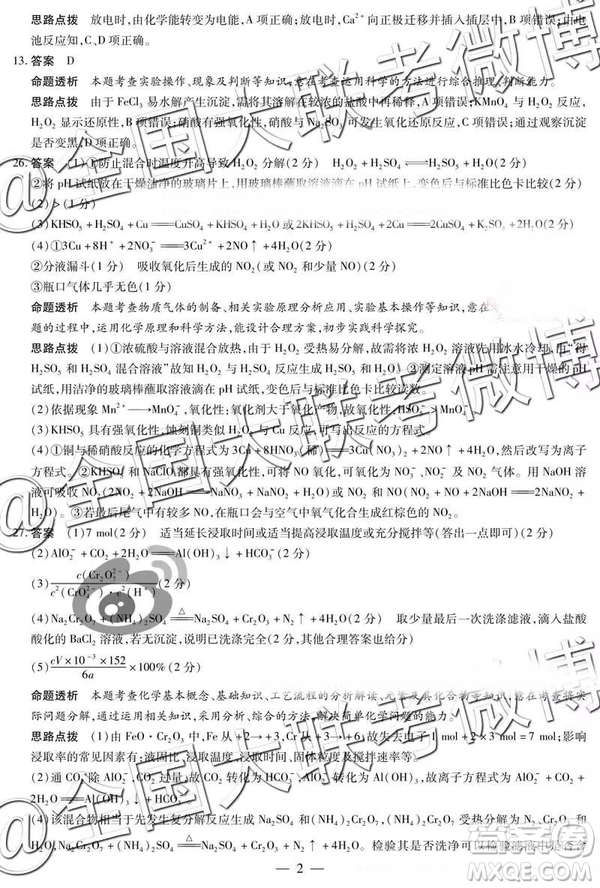 思路点拨 放电时,由化学能转变为电能,A项正确;放电时,Ca²⁺向正极迁移并插入插层中,B项错误;由电
池反应知,C、D项正确。
13. 答案 D
命题透析 本题考查实验操作、现象及判断等知识,意在考查运用科学的方法进行综合推理、判断能力。
思路点拨 由于FeCl₃易水解产生沉淀,需将其溶解在较浓的盐酸中再稀释,A项错误;KMnO₄与H₂O₂反应,
H₂O₂显示还原性,B项错误;硝酸有强氧化性,硝酸与Na₂SO₃可发生氧化还原反应,C项错误;通过观察沉淀
是否变黑,D项正确。
26. 答案 (1)①防止混合时温度升高导致H₂O₂分解(2分) H₂O₂+H₂SO₄⇌H₂SO₅+H₂O(2分)
②将pH试纸放在干燥洁净的玻璃片上,用玻璃棒蘸取溶液滴在pH试纸上,变色后与标准比色卡比较(2分)
(2)>(2分)
(3)KHSO₅+H₂SO₄+Cu══CuSO₄+KHSO₄+H₂O(或2KHSO₅+Cu══CuSO₄+K₂SO₄+H₂O)(2分)
(4)①3Cu+8H⁺+2NO₃⁻══3Cu²⁺+2NO↑+4H₂O(2分)
②分液漏斗(2分) 吸收氧化后生成的NO₂(或NO₂和少量NO)(2分)
③瓶口气体几乎无色(1分)
命题透析 本题考查物质气体的制备、相关实验原理分析应用、实验基本操作等知识,意在
题的过程中,运用化学原理和科学方法,能设计合理方案,初步实践科学探究。
思路点拨 (1)①浓硫酸与溶液混合放热,由于H₂O₂受热易分解,故需将浓H₂O₂溶液先用冰水冷却,由“得
H₂SO₅和H₂SO₄混合溶液”故知H₂O₂与H₂SO₄生成H₂SO₅和H₂O。②测定溶液pH需注意用干燥的pH试
纸,用洁净的玻璃棒蘸取溶液滴在pH试纸,变色后与标准比色卡比较读数。
(2)依据现象Mn²⁺→MnO₄⁻,氧化性:氧化剂大于氧化产物,故氧化性:HSO₅⁻>MnO₄⁻。
(3)KHSO₅具有强氧化性,蚀刻铜板与Cu反应,可写出反应的方程式。
(4)①铜与稀硝酸反应的化学方程式为3Cu+8HNO₃(稀)══3Cu(NO₃)₂+2NO↑+4H₂O,然后改写为离
子方程式。②KHSO₅和NaClO都具有强氧化性,可将NO氧化,可氧化为NO₃⁻、NO₂⁻及NO₂气体。用NaOH溶
液可吸收NO₂(2NO₂+2NaOH══NaNO₂+NaNO₃+H₂O)或NO₂和NO(NO₂+NO+2NaOH══2NaNO₂+
H₂O)。③若最后尾气中有较多NO,在瓶口会与空气中氧气氧化合生成红棕色的NO₂。
27. 答案 (1)7 mol(2分) 适当延长浸取时间或适当提高浸取温度或充分搅拌等(答出一点即可)(2分)
(2)AlO₂⁻+CO₂+2H₂O══Al(OH)₃↓+HCO₃⁻(2分)
(3)c(Cr₂O₇²⁻)/[c²(CrO₄²⁻)·c²(H⁺)](2分)
(4)Na₂Cr₂O₇+(NH₄)₂SO₄═△═Na₂SO₄+Cr₂O₃+N₂↑+4H₂O(2分) 取少量最后一次洗涤滤液,滴入盐酸
酸化的BaCl₂溶液,若无沉淀,说明已洗涤完全(2分,其他合理答案也给分)
(5)(cV×10⁻³×152)/6a×100%(2分)
命题透析 本题考查化学基本概念、基础知识、工艺流程的分析解读、元素及其化合物等知识,意在考查将实
际问题分解,通过运用相关知识,采用分析、综合的方法,解决简单化学问题的能力。
思路点拨 (1)由FeO·Cr₂O₃中,Fe从+2→+3,Cr从+3→+6,故失去电子1 mol+2×3 mol=7 mol;影响
浸取率的常见因素有:液固比,浸取温度,浸取时间、固体粒度及搅拌速率等。
(2)通CO₂除AlO₂⁻,CO₂过量,故CO₂转化为HCO₃⁻,AlO₂⁻转化为Al(OH)₃,故离子方程式为AlO₂⁻+CO₂+
2H₂O══Al(OH)₃↓+HCO₃⁻。
(4)该混合物相当于先发生复分解反应生成Na₂SO₄和(NH₄)₂Cr₂O₇,(NH₄)₂Cr₂O₇受热发生氧化还原反应
生成Cr₂O₃和N₂,故方程式为Na₂Cr₂O₇+(NH₄)₂SO₄═△═Na₂SO₄+Cr₂O₃+N₂↑+4H₂O。检验其是否洗净可以检验滤液中是否含
— 2 —
@全国大联考微博
@全国大联考微博
@全国大联考微博
答案圈
MXQE.COM